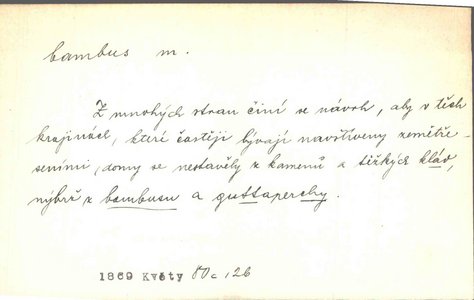 bambus m.
Z mnohých stran činí se návrh, aby v těch
krajinách, které častěji bývají navštíveny zemětře-
seními, domy se nestavěly z kamenů a těžkých klád,
nýbrž z bambusu a guttaperchy.
1869 Květy 80c, 126